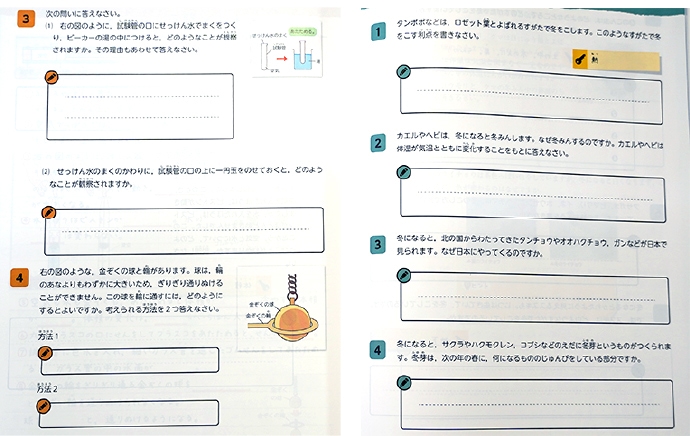 3
次の問いに答えなさい。
(1) 右の図のように，試験管の口にせっけん水でまくをつく
り，ビーカーの湯の中につけると，どのようなことが観察
されますか。その理由もあわせて答えなさい。
せっけん水のまく
試験管
空気
あたためる。
湯
(2) せっけん水のまくのかわりに，試験管の口の上に一円玉をのせておくと，どのよう
なことが観察されますか。
4
右の図のような，金ぞくの球と輪があります。球は，輪
のあなよりもわずかに大きいため，ぎりぎり通りぬける
ことができません。この球を輪に通すには，どのように
するとよいですか。考えられる方法を2つ答えなさい。
金ぞくの球
金ぞくの輪
方法1
方法2
1
タンポポなどは，ロゼット葉とよばれるすがたで冬をこします。このようなすがたで冬
をこす利点を書きなさい。
熱
2
カエルやヘビは，冬になると冬みんします。なぜ冬みんするのですか。カエルやヘビは
体温が気温とともに変化することをもとに答えなさい。
3
冬になると，北の国からわたってきたタンチョウやオオハクチョウ，ガンなどが日本で
見られます。なぜ日本にやってくるのですか。
4
冬になると，サクラやハクモクレン，コブシなどのえだに冬芽というものがつくられま
す。冬芽は，次の年の春に，何になるもののじゅんびをしている部分ですか。